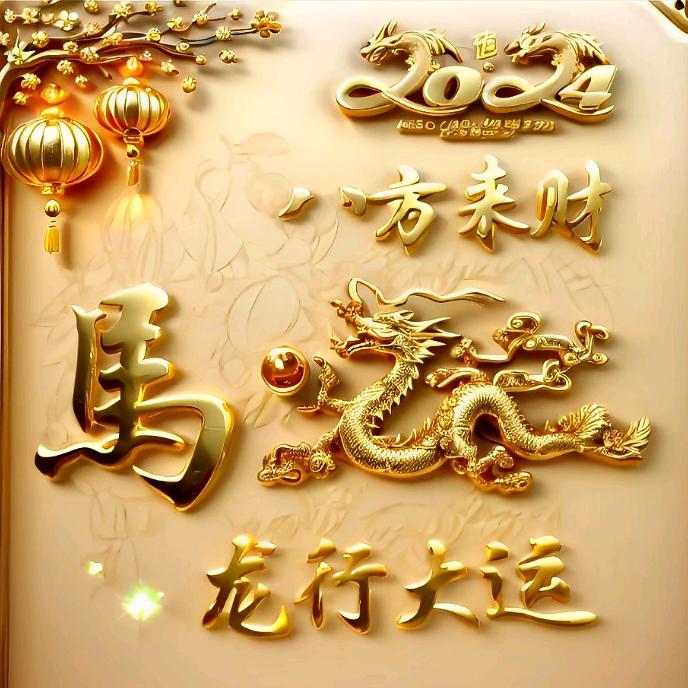 2024
八方来财
馬
龙行大运